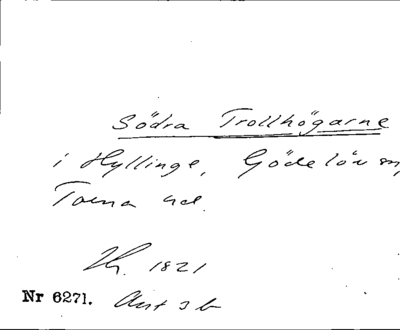 Södra Trollhögarne
i Hyllinge, Gödelöv
Torna hd.
1821
Nr 6271.